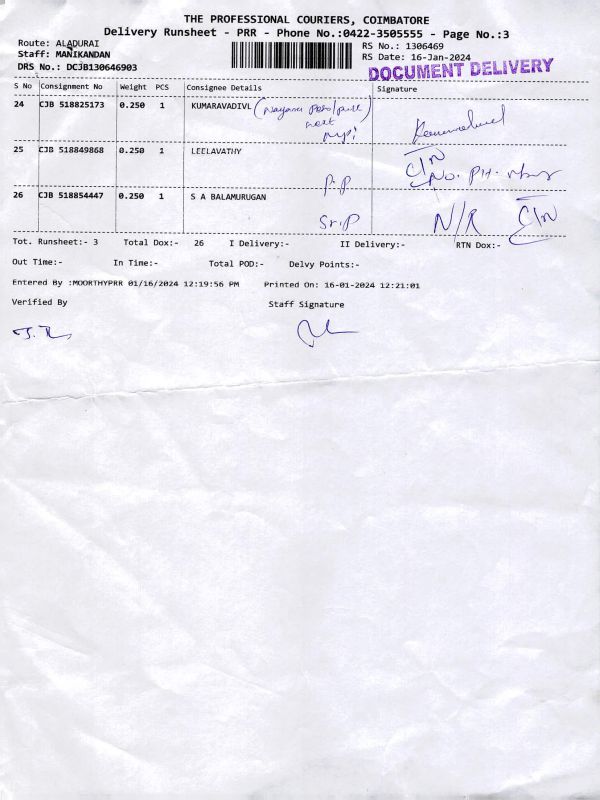 THE PROFESSIONAL COURIERS, COIMBATORE
Delivery Runsheet - PRR - Phone No.:0422-3505555 - Page No.:3
Route: ALADURAI
Staff: MANIKANDAN
DRS No.: DCJB130646903
RS No.: 1306469
RS Date: 16-Jan-2024
DOCUMENT DELIVERY
S No Consignment No Weight PCS Consignee Details Signature
24 CJB 518825173 0.250 1 KUMARAVADIVL
25 CJB 518849868 0.250 1 LEELAVATHY
P.P No. PH.
26 CJB 518854447 0.250 1 S A BALAMURUGAN
Sr.P N/R
Tot. Runsheet:- 3 Total Dox:- 26 I Delivery:- II Delivery:- RTN Dox:-
Out Time:- In Time:- Total POD:- Delvy Points:-
Entered By :MOORTHYPRR 01/16/2024 12:19:56 PM Printed On: 16-01-2024 12:21:01
Verified By Staff Signature